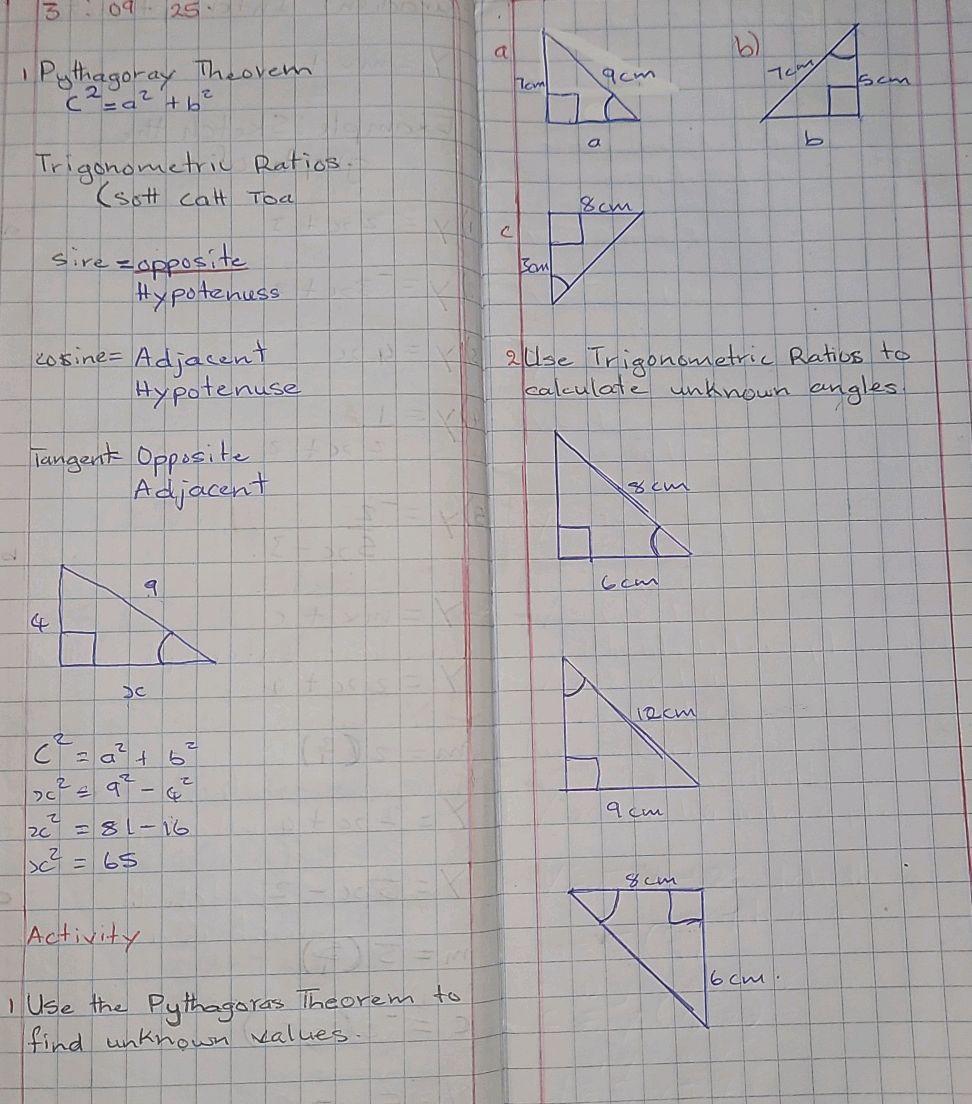 3 : 09 25.
1 Pythagoray Theorem
c² = a² + b²
Trigonometric Ratios.
(SoH CaH Toa
Sire = opposite
Hypotenuss
cosine = Adjacent
Hypotenuse
Tangent = Opposite
Adjacent
9
4
x
C² = a² + b²
x² = 9² - 4²
x² = 81 - 16
x² = 65
Activity
1 Use the Pythagoras Theorem to
find unknown values.
a
7cm
9cm
a
b)
7cm
5cm
b
c
8cm
3cm
2 Use Trigonometric Ratios to
calculate unknown angles.
8cm
6cm
12cm
9cm
8cm
6cm.